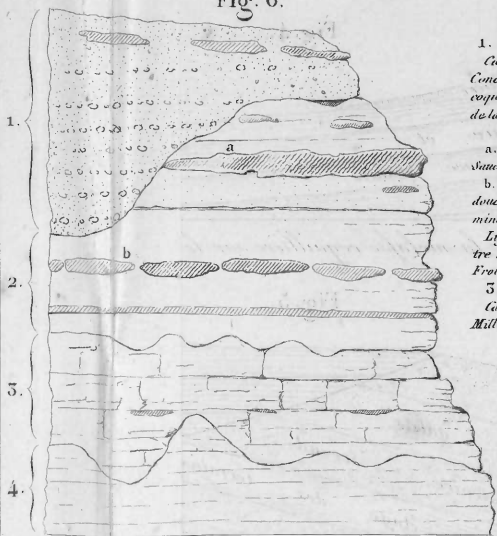 Fig. 6.
1.
a
b
2.
3.
4.
1.
Co
Conc
coqu
de la
a.
Sau
b.
douc
min
Li
tre
Frot
3
Ca
Mill